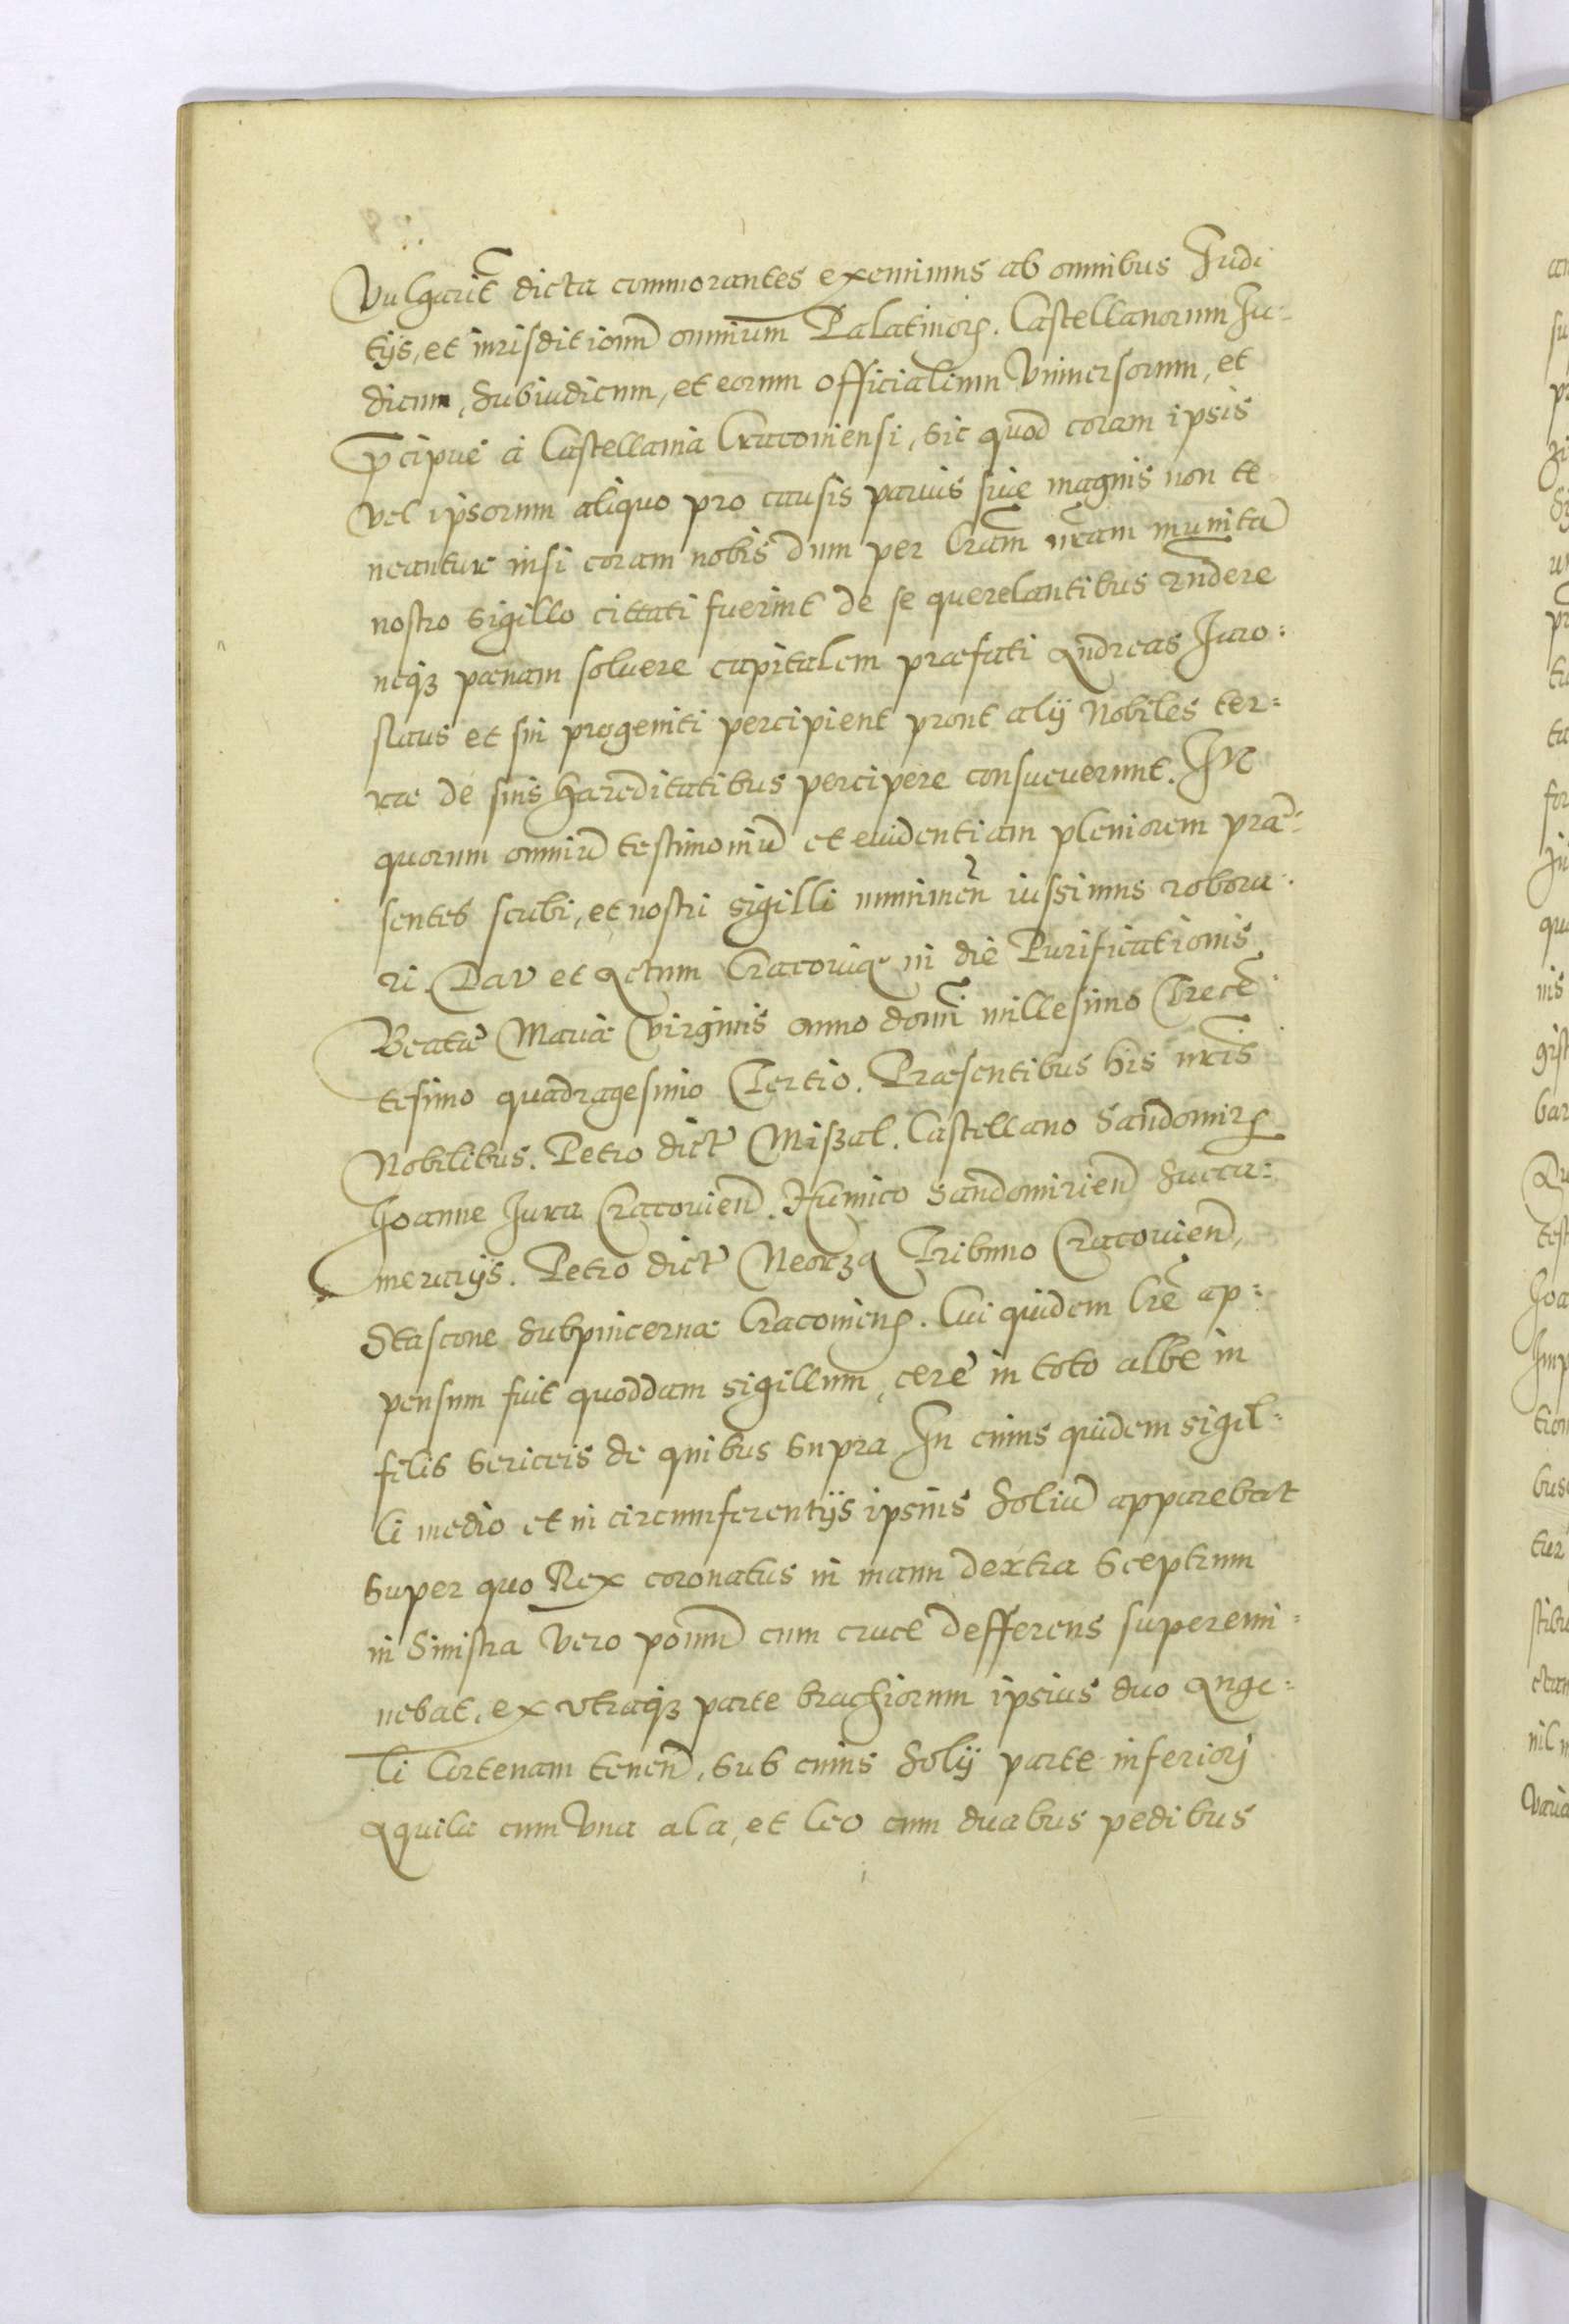 Vulgarit̃ dicta commorantes exemimus ab omnibus Judi
tijs, et iurisditionũ omnium Palatinorꝝ. Castellanorum Ju-
dicum, Subiudicum, et eorum officialium Vniuersorum, et
p̃cipue à Castellania Cracouiensi, sic quod coram ipsis
vel ipsorum aliquo pro causis paruis siue magnis non te
neantur nisi coram nobis dum per l̃ram nr̃am munitã
nostro sigillo cittati fuerint de se querelantibus r̃ndere
neqꝫ pœnam soluere capitalem præfati Andreas Jaro:
slaus et sui progeniti percipient prout alij Nobiles ter:
ræ de suis hæreditatibus percipere consueuerunt. IN
quorum omniũ testimoniũ et euidentiam pleniorem præ:
sentes scribi, et nostri sigilli munimeñ iussimus robora:
ri. Daṽ et Actum Cracouiæ in die Purificationis
Beatæ Mariæ Virginis anno domi millesimo Trecẽ:
tesimo quadragesimo Tertio. Præsentibus his nr̃is
Nobilibus. Petro dict̃ Misꝫal. Castellano Sandomirꝝ
Joanne Jura Cracouieñ. Humico Sandomirieñ Succa:
merarijs. Petro dict̃ Neorza Tribuno Cracouieñ,
Stascone Subpincernæ Cracouieñꝝ. Cui quidem l̃re ap:
pensum fuit quoddam sigillum, cere in toto albe in
filis sericeis de quibus supra In cuius quidem sigil:
li medio et in circumferentijs ipsius Soliũ apparebat
super quo Rex coronatus in manu dextra sceptrum
in Sinistra Vero pomũ cum cruce defferens superemi:
nebat, ex vtraqꝫ parte brachiorum ipsius duo Ange:
li Cortenam teneñ, sub cuius Solij parte inferiorj
Aquila cum Vna ala, et leo cum duabus pedibus